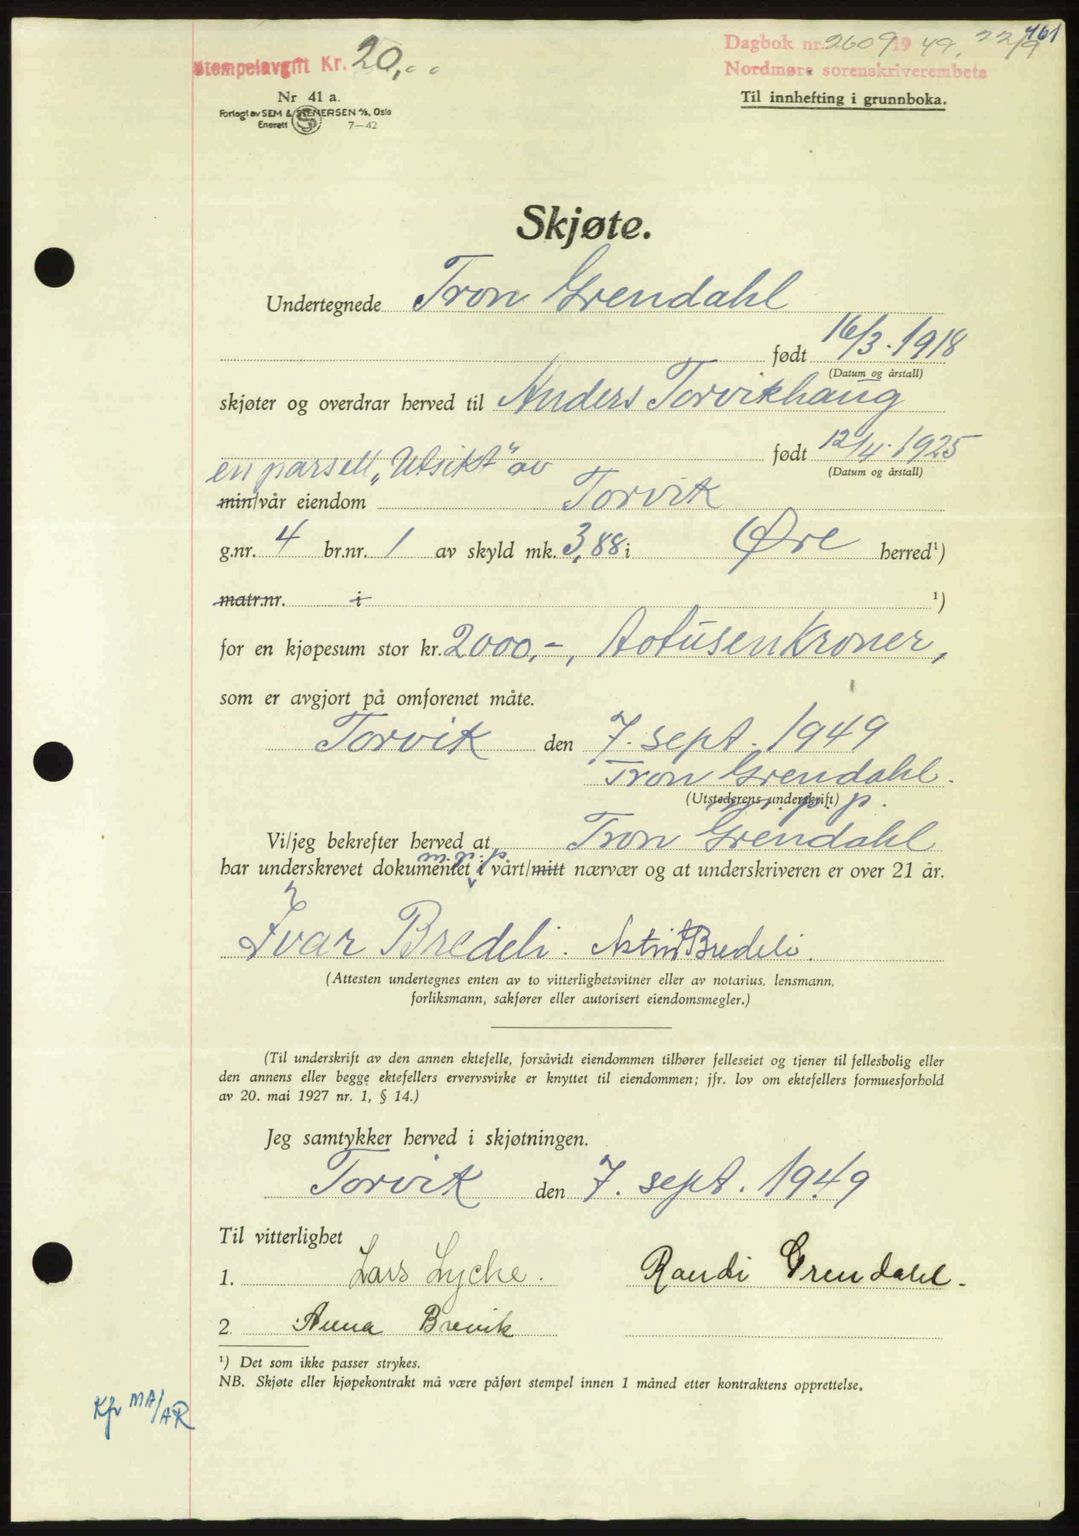 461
Dagbok nr. 2609 19 49, 22/9
Stempelavgift Kr. 20,..
Nordmøre sorenskriverembete
Nr 41 a.
Til innhefting i grunnboka.
Forlagt av SEM & STENERSEN A/S, Oslo
Enerett 7—42
Skjøte.
Undertegnede Tron Grendahl
født 16/3. 1918
(Datum og årstall)
skjøter og overdrar herved til Anders Torvikhaug
født 12/4. 1925
(Datum og årstall)
en parsell „Utsikt" av
min/vår eiendom Torvik
g.nr. 4 br.nr. 1 av skyld mk. 3,88 i Øre herred¹)
matr.nr. i ¹)
for en kjøpesum stor kr. 2000,-, totusenkroner,
som er avgjort på omforenet måte.
Torvik den 7. sept. 1949
Tron Grendahl.
(Utstederens underskrift)
m. p. p.
Vi/jeg bekrefter herved at Tron Grendahl
m. p. p.
har underskrevet dokumentet i vårt/mitt nærvær og at underskriveren er over 21 år.
Ivar Bredeli. Astrid Bredeli.
(Attesten undertegnes enten av to vitterlighetsvitner eller av notarius, lensmann,
forliksmann, sakfører eller autorisert eiendomsmegler.)
(Til underskrift av den annen ektefelle, forsåvidt eiendommen tilhører felleseiet og tjener til fellesbolig eller
den annens eller begge ektefellers ervervsvirke er knyttet til eiendommen; jfr. lov om ektefellers formuesforhold
av 20. mai 1927 nr. 1, § 14.)
Jeg samtykker herved i skjøtningen.
Torvik den 7. sept. 1949
Til vitterlighet
1. Lars Lyche. Randi Grendahl.
2. Anna Brevik
¹) Det som ikke passer strykes.
NB. Skjøte eller kjøpekontrakt må være påført stempel innen 1 måned etter kontraktens opprettelse.
Kfr MA/AR